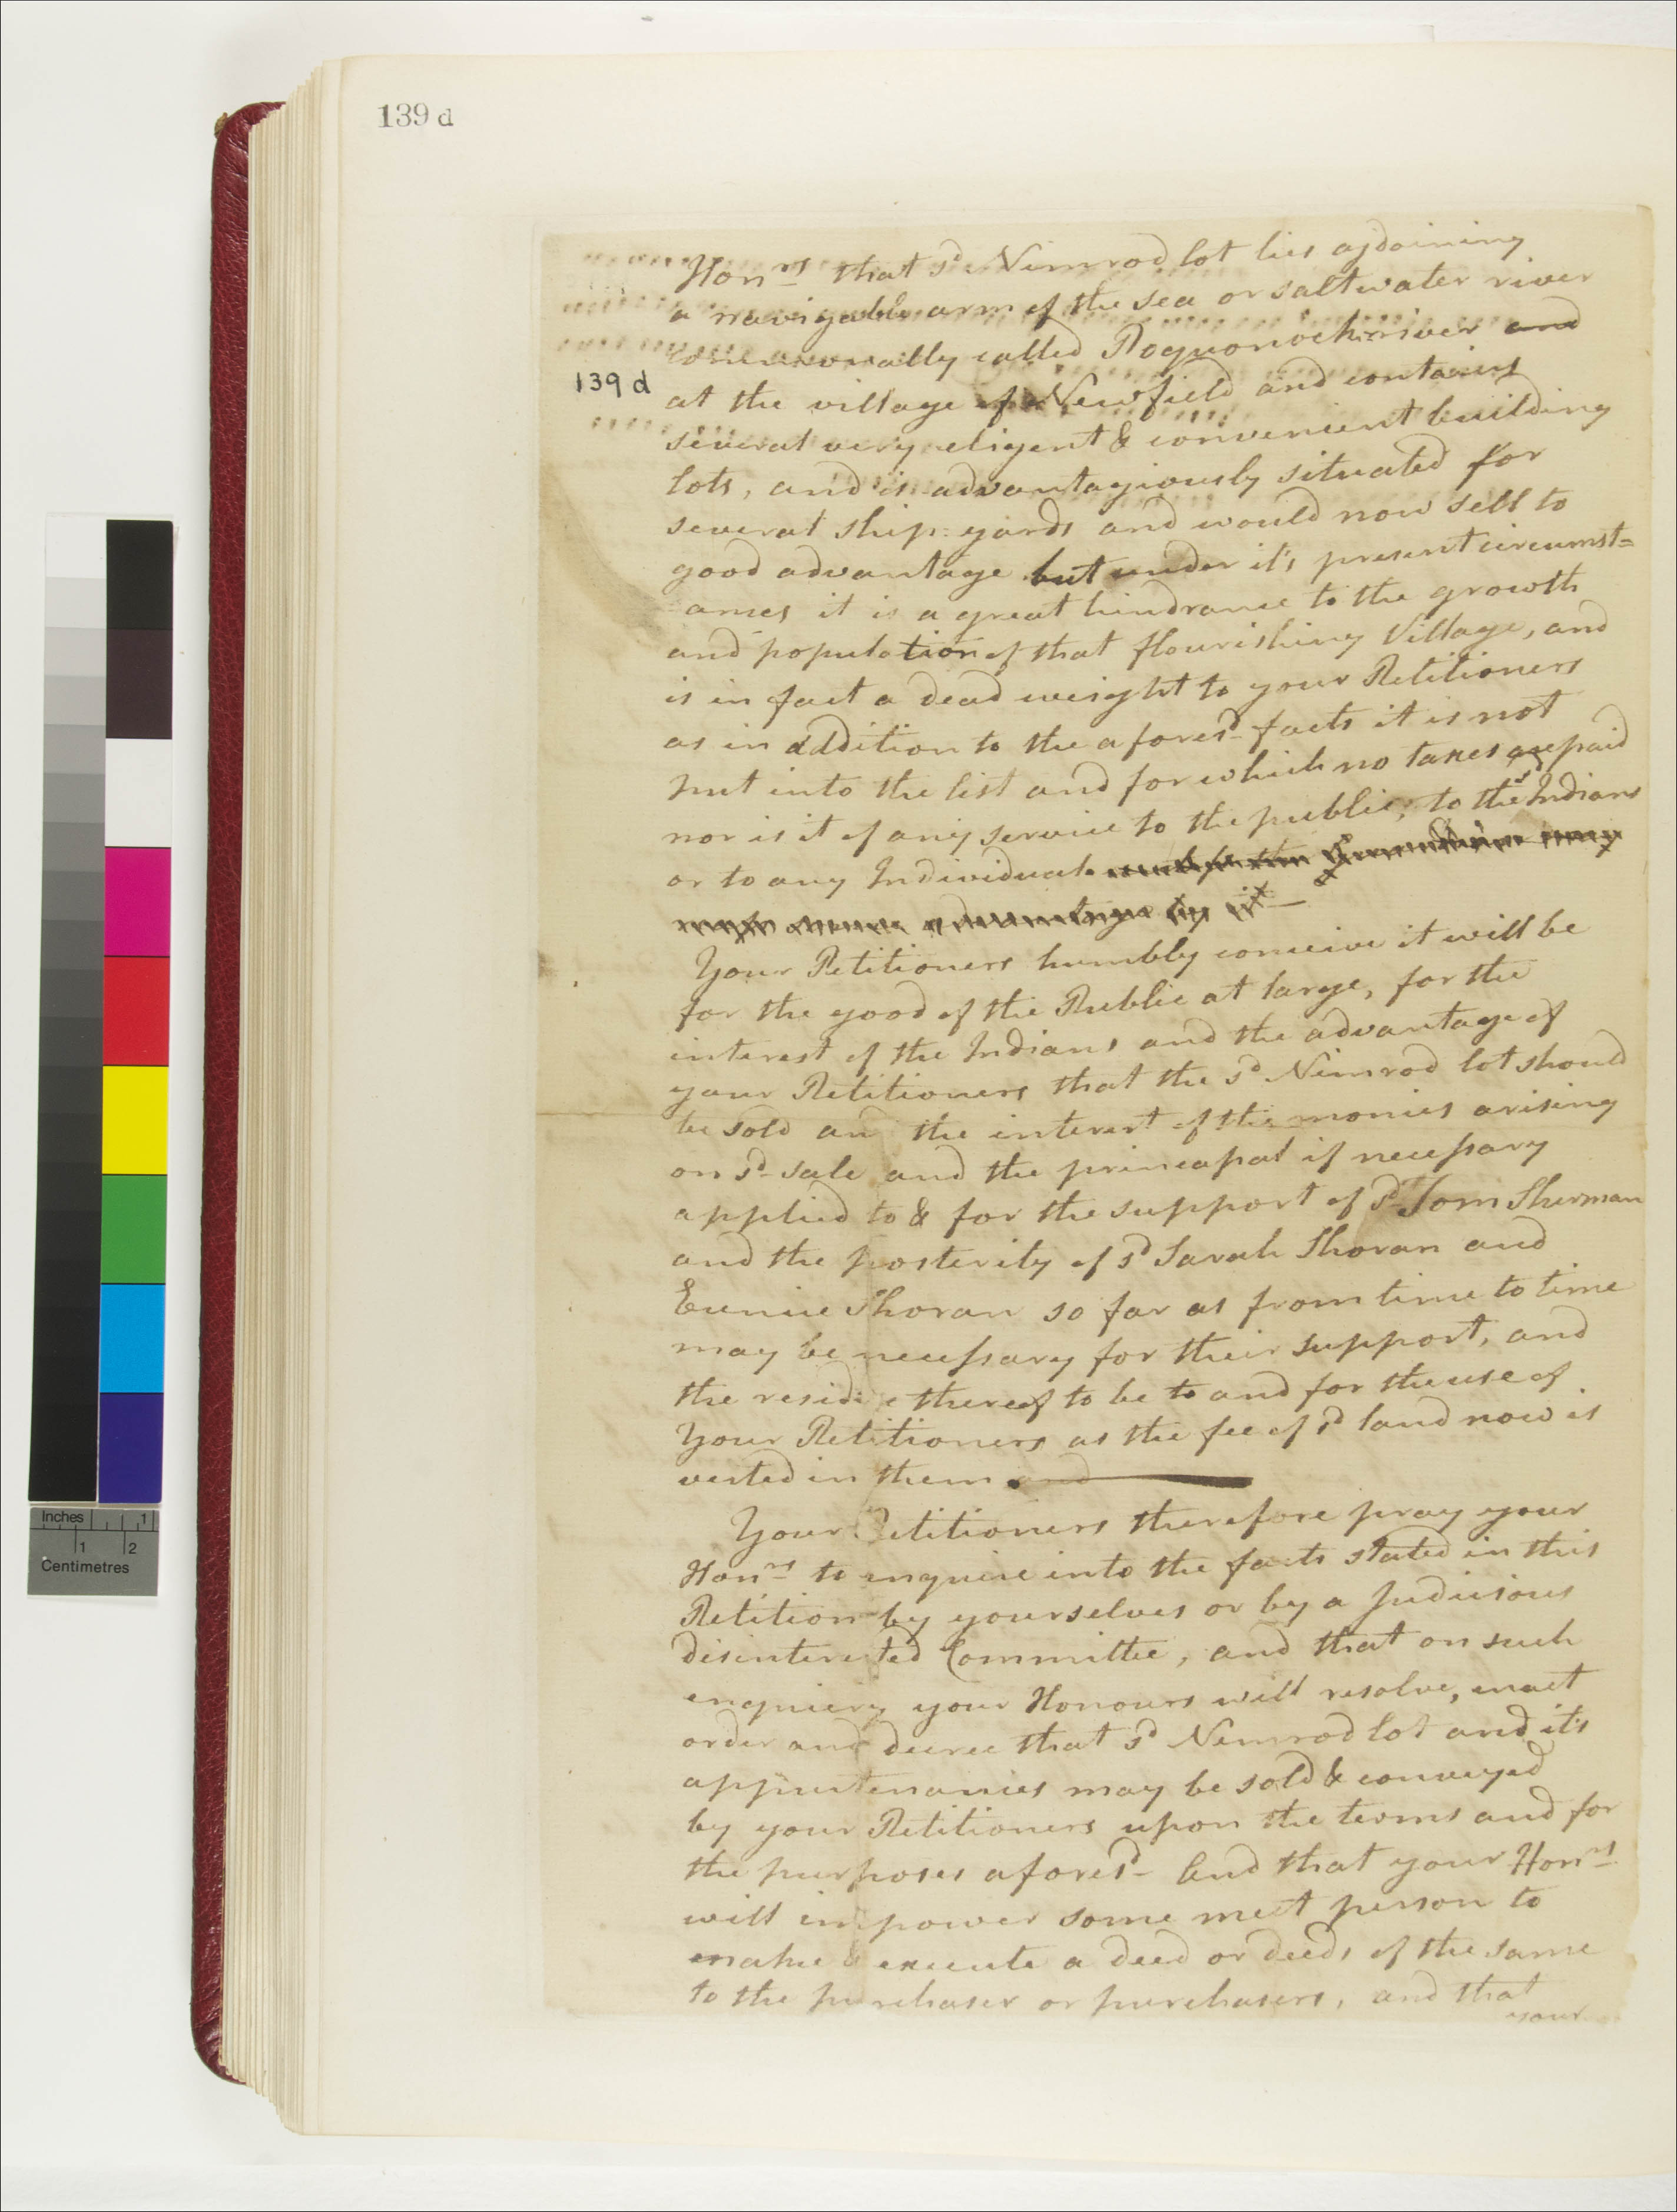 139 d
Honrs that sd Nimrod lot lies ajdoining
a navigable arm of the sea or saltwater river
called Poquonock river and
139 d
at the village of Newfield and contains
several very eligent & convenient building
lots, and is advantagiously situated for
several ship-yards and would now sell to
good advantage but under it's present circumst=
ances it is a great hindrance to the growth
and population of that flourishing Village, and
is in fact a dead weight to your Petitioners
as in addition to the aforesd facts it is not
put into the list and for which no taxes are paid
nor is it of any service to the public, to the sd Indians
or to any Individual
advantage by it
Your Petitioners humbly conceive it will be
for the good of the Public at large, for the
interest of the Indians and the advantage of
your Petitioners that the sd Nimrod lot should
be sold and the interest of the monies arising
on sd sale and the principal if necessary
applied to & for the support of sd Tom Sherman
and the posterity of sd Sarah Shoran and
Eunice Shoran so far as from time to time
may be necessary for their support, and
the residue thereof to be to and for the use of
Your Petitioners as the fee of sd land now is
vested in them and
Your Petitioners therefore pray your
Honrs to enquire into the facts stated in this
Petition by yourselves or by a Judicious
disinterested Committee, and that on such
enquiery your Honours will resolve, enact
order and decree that sd Nimrod lot and it's
appurtenances may be sold & conveyed
by your Petitioners upon the terms and for
the purposes aforesd And that your Honrs
will impower some meet person to
make & execute a deed or deeds of the same
to the purchaser or purchasers, and that
your
Inches 1
1 2
Centimetres